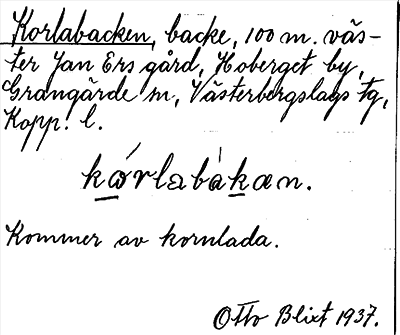 Korlabacken, backe, 100 m. väs-
ter Jan Ers gård, Hoberget by,
Grangärde sn, Västerbergslags tg,
Kopp. l.
kòrlabàkæn.
Kommer av kornlada.
Otto Blixt 1937.